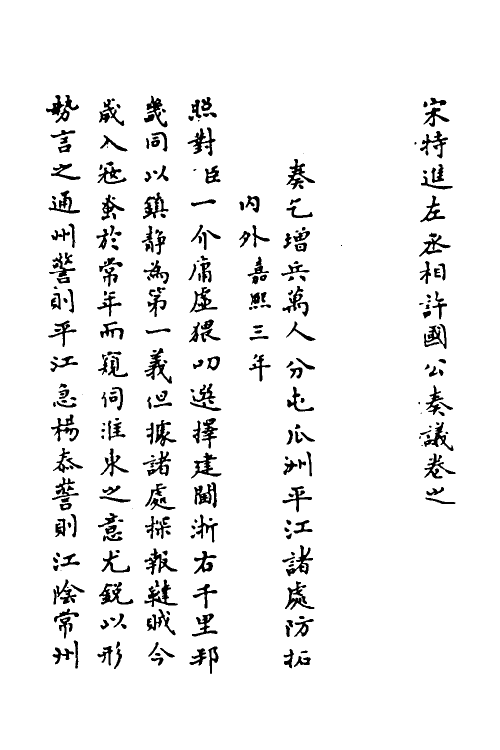 宋特進左丞相許國公奏議卷之
奏乞增兵萬人分屯瓜洲平江諸處防拓
內外嘉熙三年
照對臣一介庸虛猥叨選擇建閫浙右千里邦
畿同以鎮靜為第一義但據諸處探報韃賊今
歲入寇蚤於常年而窺伺淮東之意尤銳以形
勢言之通州警則平江急楊泰警則江陰常州